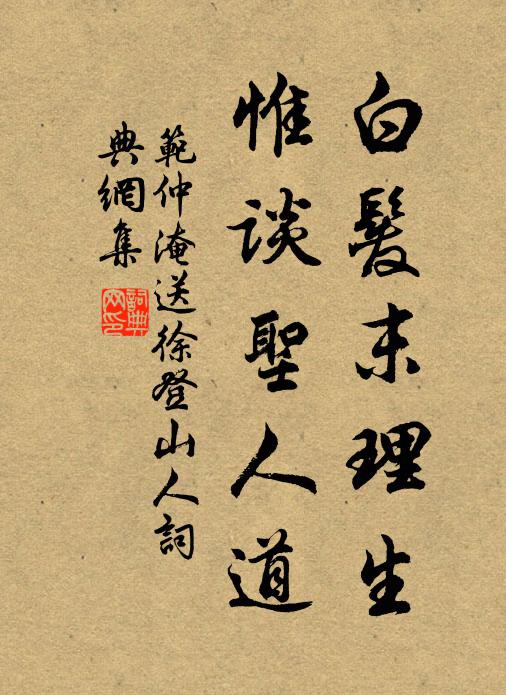 白髮未理生
惟談聖人道
範仲淹送徐登山人詞
典網集
詞典
網印